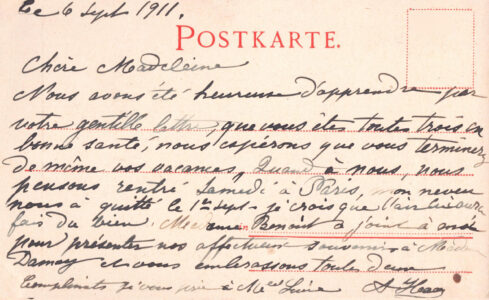 Le 6 Sept 1911.
POSTKARTE.
Chère Madeleine
Nous avons été heureuse d'apprendre par
votre gentille lettre, que vous êtes toutes trois en
bonne santé, nous espérons que vous terminerez
de même vos vacances, Quand à nous, nous
pensons rentré Samedi à Paris, mon neveu
nous à quitté le 1er Sept. je crois que l'air lui aura
fais du bien. Benoit à joint à
pour présenter nos affectueux souvenirs à
Damoy et vous embrassons toutes deux
Compliments je vous prie à